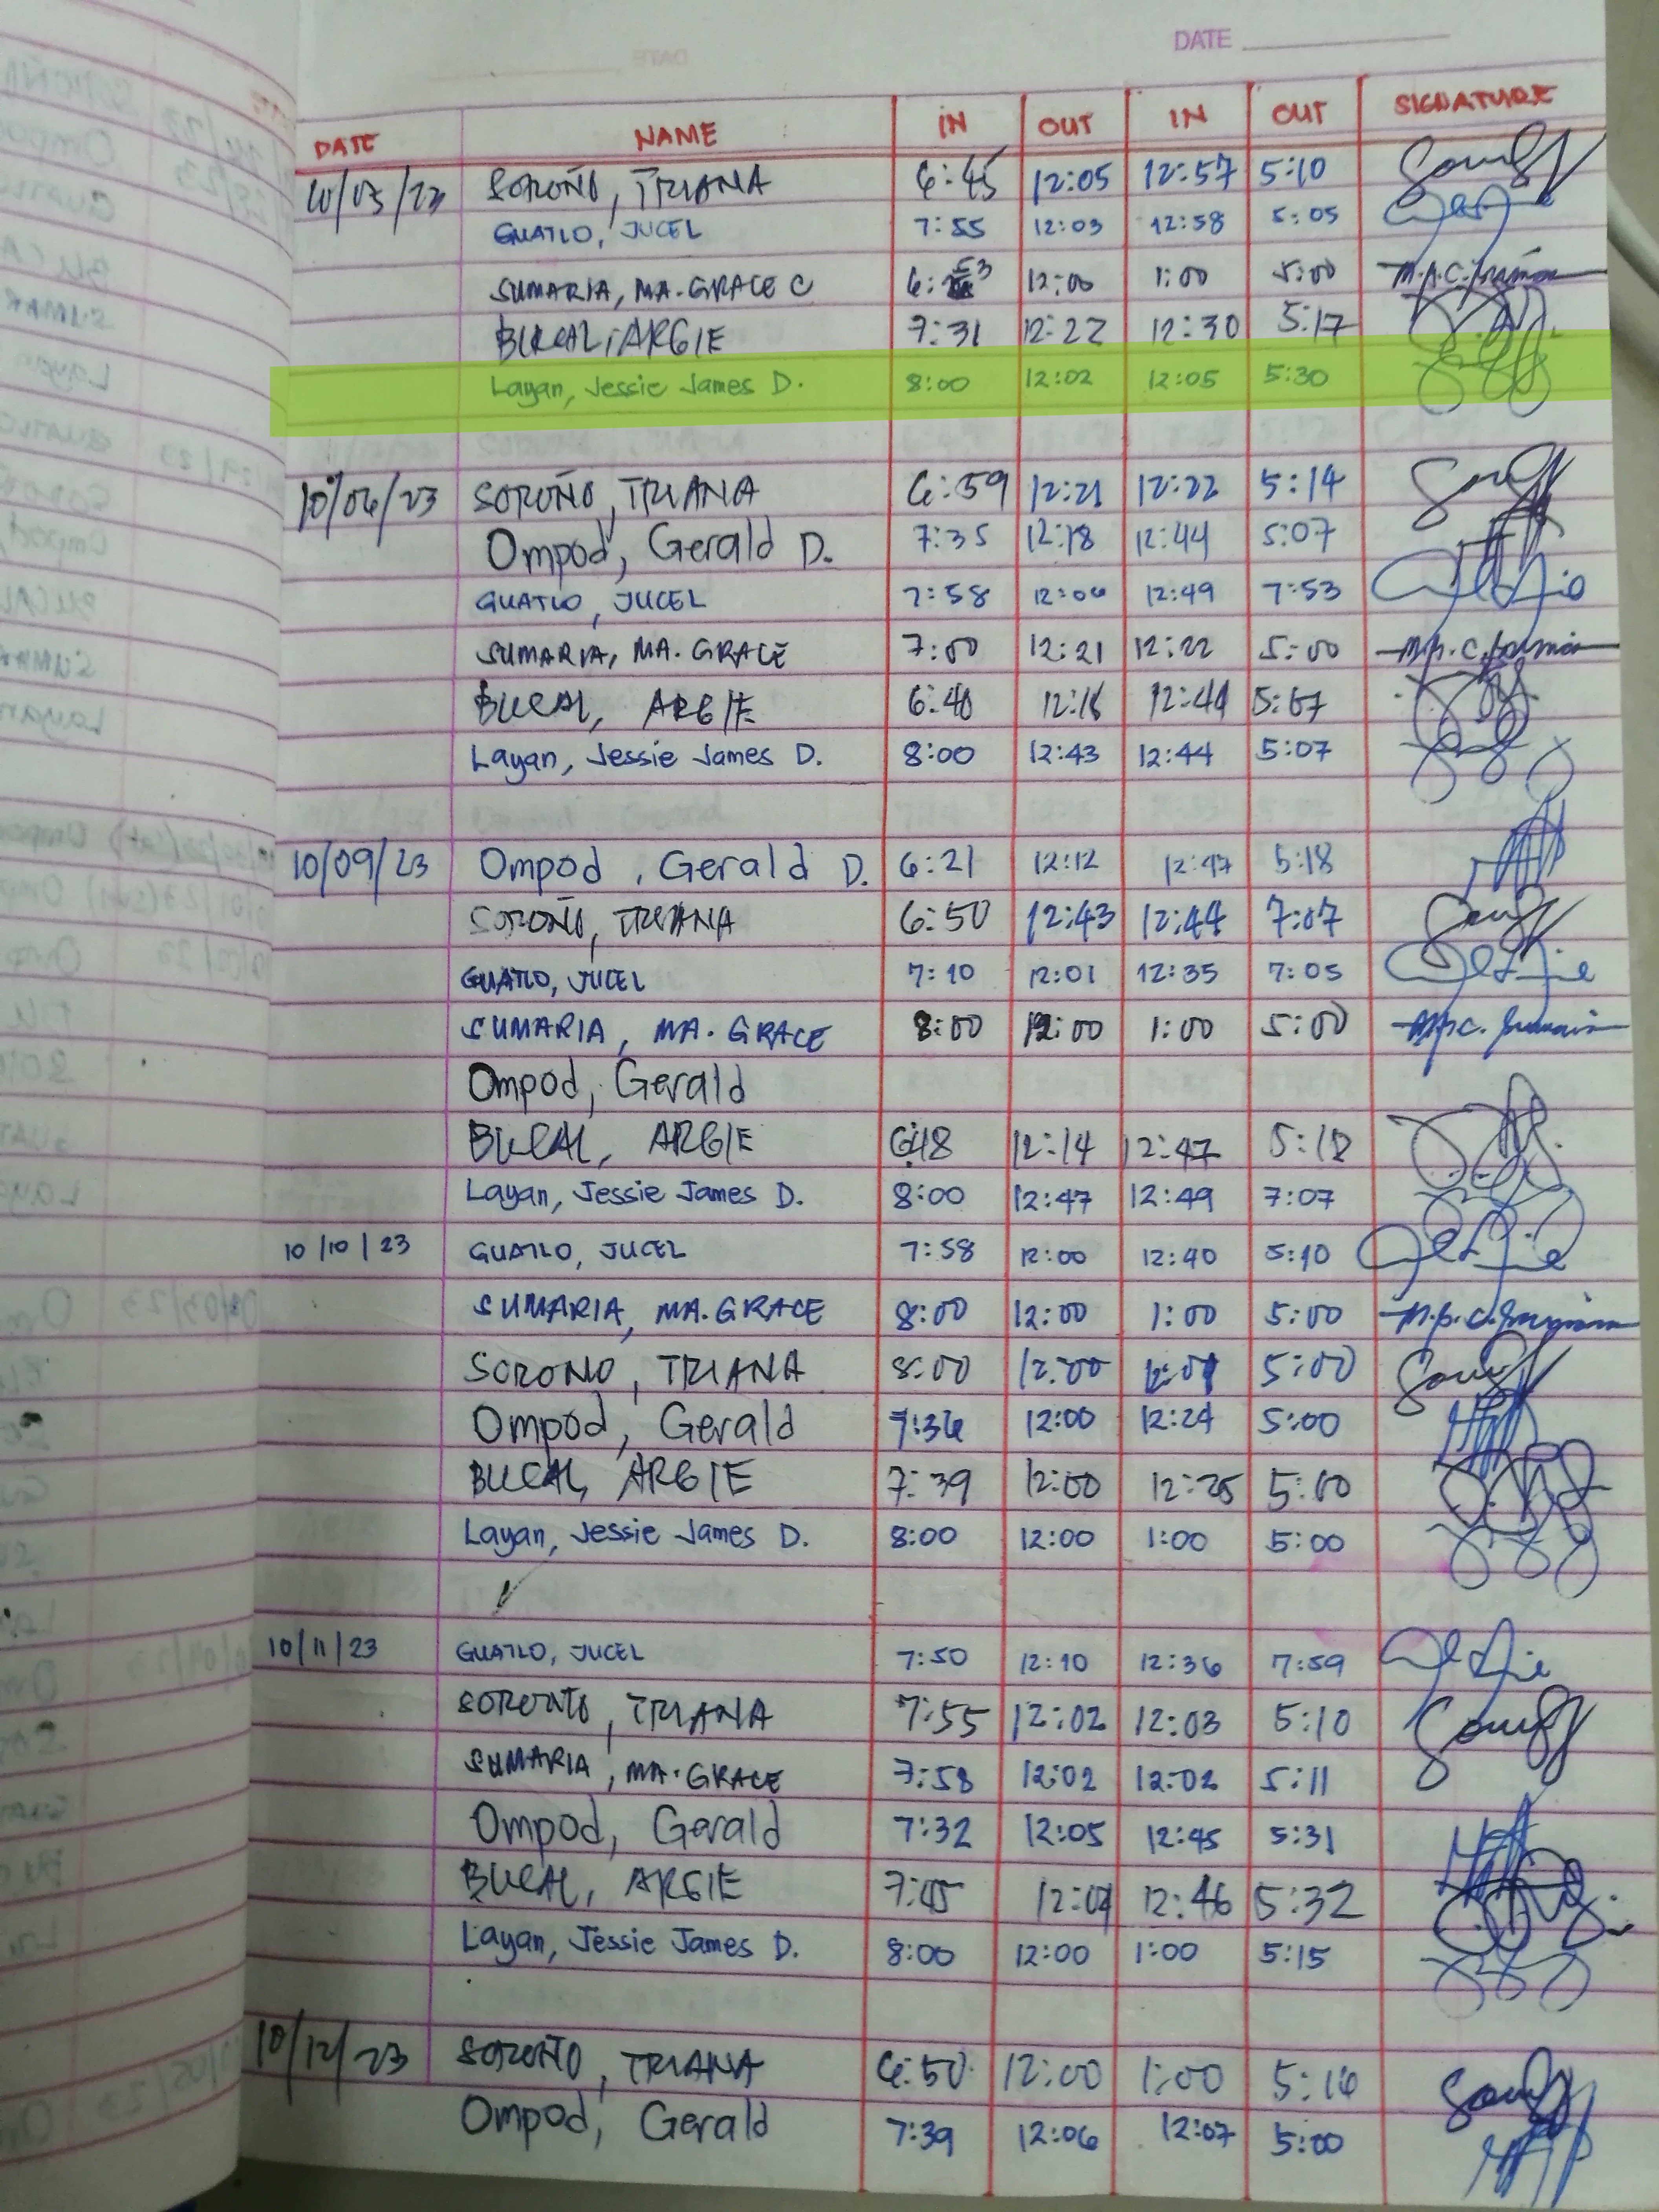 DATE
DATE NAME IN OUT IN OUT SIGNATURE
SOROÑO, TRIANA 6:45 12:05 12:57 5:10
GUATLO, JUCEL 7:55 12:03 12:58 5:05
SUMARIA, MA. GRACE C 12:00 1:00 5:00
BUCAL, ARGIE 7:31 12:22 12:30 5:17
Layan, Jessie James D. 8:00 12:02 12:05 5:30
10/06/23 SOROÑO, TRIANA 6:59 12:21 12:22 5:14
Ompod, Gerald D. 7:35 12:18 12:44 5:07
GUATLO, JUCEL 7:58 12:06 12:49 7:53
SUMARIA, MA. GRACE 7:00 12:21 12:22 5:00
BUCAL, ARGIE 6:40 12:44 5:07
Layan, Jessie James D. 8:00 12:43 12:44 5:07
10/09/23 Ompod, Gerald D. 6:21 12:12 12:47 5:18
SOROÑO, TRIANA 6:50 12:43 12:44 7:07
GUATLO, JUCEL 7:10 12:01 12:35 7:05
SUMARIA, MA. GRACE 8:00 12:00 1:00 5:00
Ompod, Gerald
BUCAL, ARGIE 6:18 12:14 12:47 5:18
Layan, Jessie James D. 8:00 12:47 12:49 7:07
10/10/23 GUATLO, JUCEL 7:58 12:00 12:40 5:10
SUMARIA, MA. GRACE 8:00 12:00 1:00 5:00
SOROÑO, TRIANA 8:00 12:00 5:00
Ompod, Gerald 7:36 12:00 12:24 5:00
BUCAL, ARGIE 7:39 12:00 12:25 5:00
Layan, Jessie James D. 8:00 12:00 1:00 5:00
10/11/23 GUATLO, JUCEL 7:50 12:10 12:36 7:59
SOROÑO, TRIANA 7:55 12:02 12:03 5:10
SUMARIA, MA. GRACE 7:58 12:02 12:02 5:11
Ompod, Gerald 7:32 12:05 12:45 5:31
BUCAL, ARGIE 7:45 12:46 5:32
Layan, Jessie James D. 8:00 12:00 1:00 5:15
10/12/23 SOROÑO, TRIANA 6:50 12:00 1:00 5:16
Ompod, Gerald 7:39 12:06 12:07 5:00